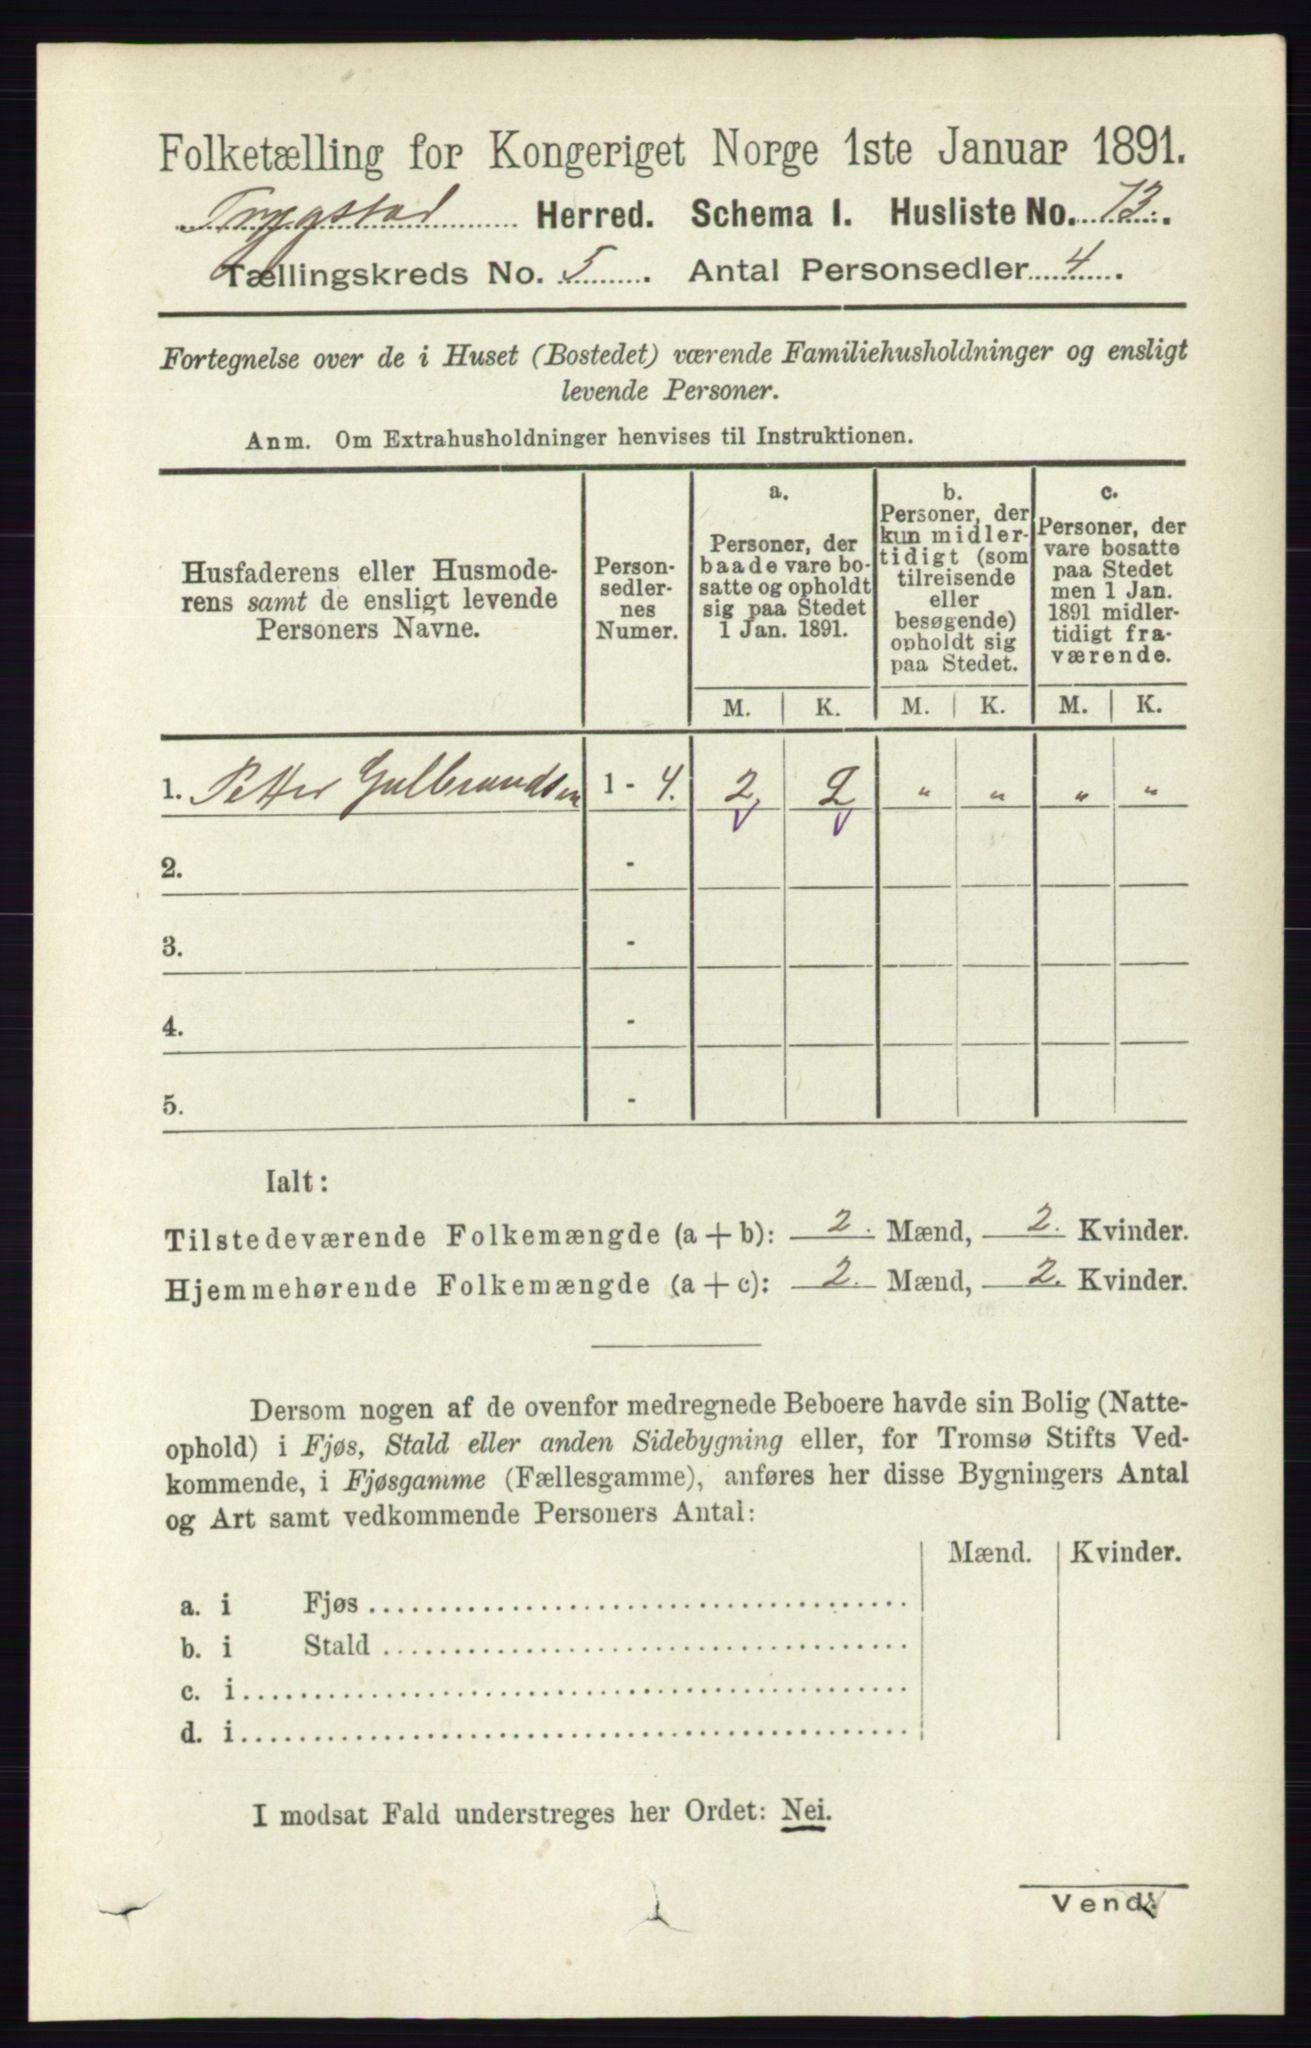 Folketælling for Kongeriget Norge 1ste Januar 1891.
Trygstad Herred. Schema I. Husliste No. 73.
Tællingskreds No. 5. Antal Personsedler 4.
Fortegnelse over de i Huset (Bostedet) værende Familiehusholdninger og ensligt
levende Personer.
Anm. Om Extrahusholdninger henvises til Instruktionen.
Husfaderens eller Husmode-
rens samt de ensligt levende
Personers Navne.
Person-
sedler-
nes
Numer.
a.
Personer, der
baade vare bo-
satte og opholdt
sig paa Stedet
1 Jan. 1891.
b.
Personer, der
kun midler-
tidigt (som
tilreisende
eller
besøgende)
opholdt sig
paa Stedet.
c.
Personer, der
vare bosatte
paa Stedet
men 1 Jan.
1891 midler-
tidigt fra-
værende.
M. K. M. K. M. K.
1. Petter Gulbrandsen 1 - 4. 2, 2 " " " "
2. -
3. -
4. -
5. -
Ialt:
Tilstedeværende Folkemængde (a + b): 2. Mænd, 2. Kvinder.
Hjemmehørende Folkemængde (a + c): 2. Mænd, 2. Kvinder.
Dersom nogen af de ovenfor medregnede Beboere havde sin Bolig (Natte-
ophold) i Fjøs, Stald eller anden Sidebygning eller, for Tromsø Stifts Ved-
kommende, i Fjøsgamme (Fællesgamme), anføres her disse Bygningers Antal
og Art samt vedkommende Personers Antal:
Mænd. Kvinder.
a. i Fjøs
b. i Stald
c. i
d. i
I modsat Fald understreges her Ordet: Nei.
Vend!